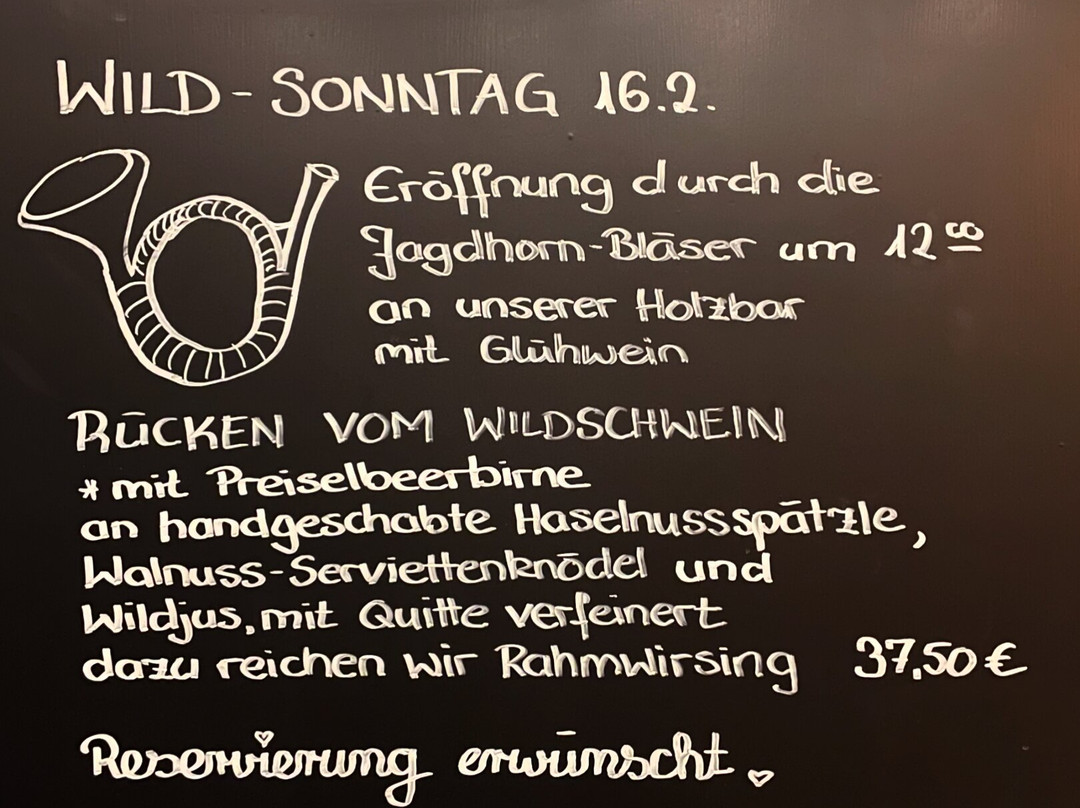 WILD-SONNTAG 16.2.
Eröffnung durch die
Jagdhorn-Bläser um 12⁰⁰
an unserer Holzbar
mit Glühwein
RÜCKEN VOM WILDSCHWEIN
* mit Preiselbeerbirne
an handgeschabte Haselnussspätzle,
Walnuss-Serviettenknödel und
Wildjus, mit Quitte verfeinert
dazu reichen wir Rahmwirsing 37,50 €
Reservierung erwünscht.